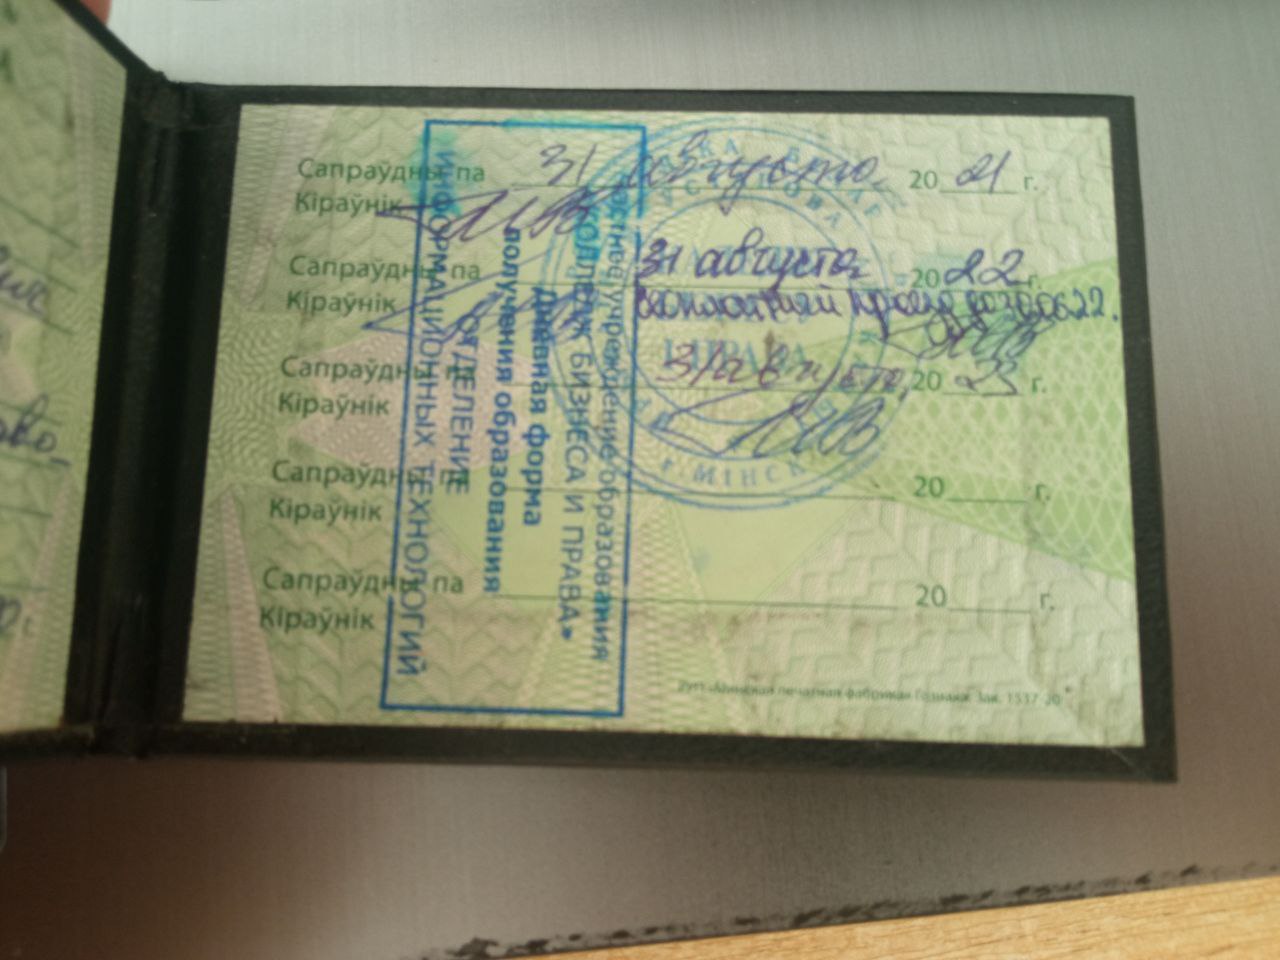 Сапраўдны па 31 августа 2021 г.
Кіраўнік
Сапраўдны па 31 августа 2022 г.
Кіраўнік бесплатный проезд до 30.06.22.
Сапраўдны па 31 августа 2023 г.
Кіраўнік
Сапраўдны па 20 г.
Кіраўнік
Сапраўдны па 20 г.
Кіраўнік
Частное учреждение образования
«КОЛЛЕДЖ БИЗНЕСА И ПРАВА»
Дневная форма
получения образования
ОТДЕЛЕНИЕ
ИНФОРМАЦИОННЫХ ТЕХНОЛОГИЙ
І ПРАВА
г. МІНСК
РУП «Минская печатная фабрика» Гознака. Зак. 1537-20